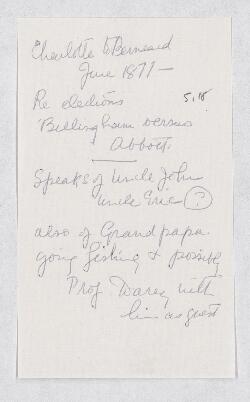 Charlotte to Bernard
June 1877 —
Re elections 5,15
Billingham versus
Abbott.
Speaks of Uncle John
Uncle Eric (?)
also of Grandpapa
going fishing & possibly
Prof. Darey with
him as guest